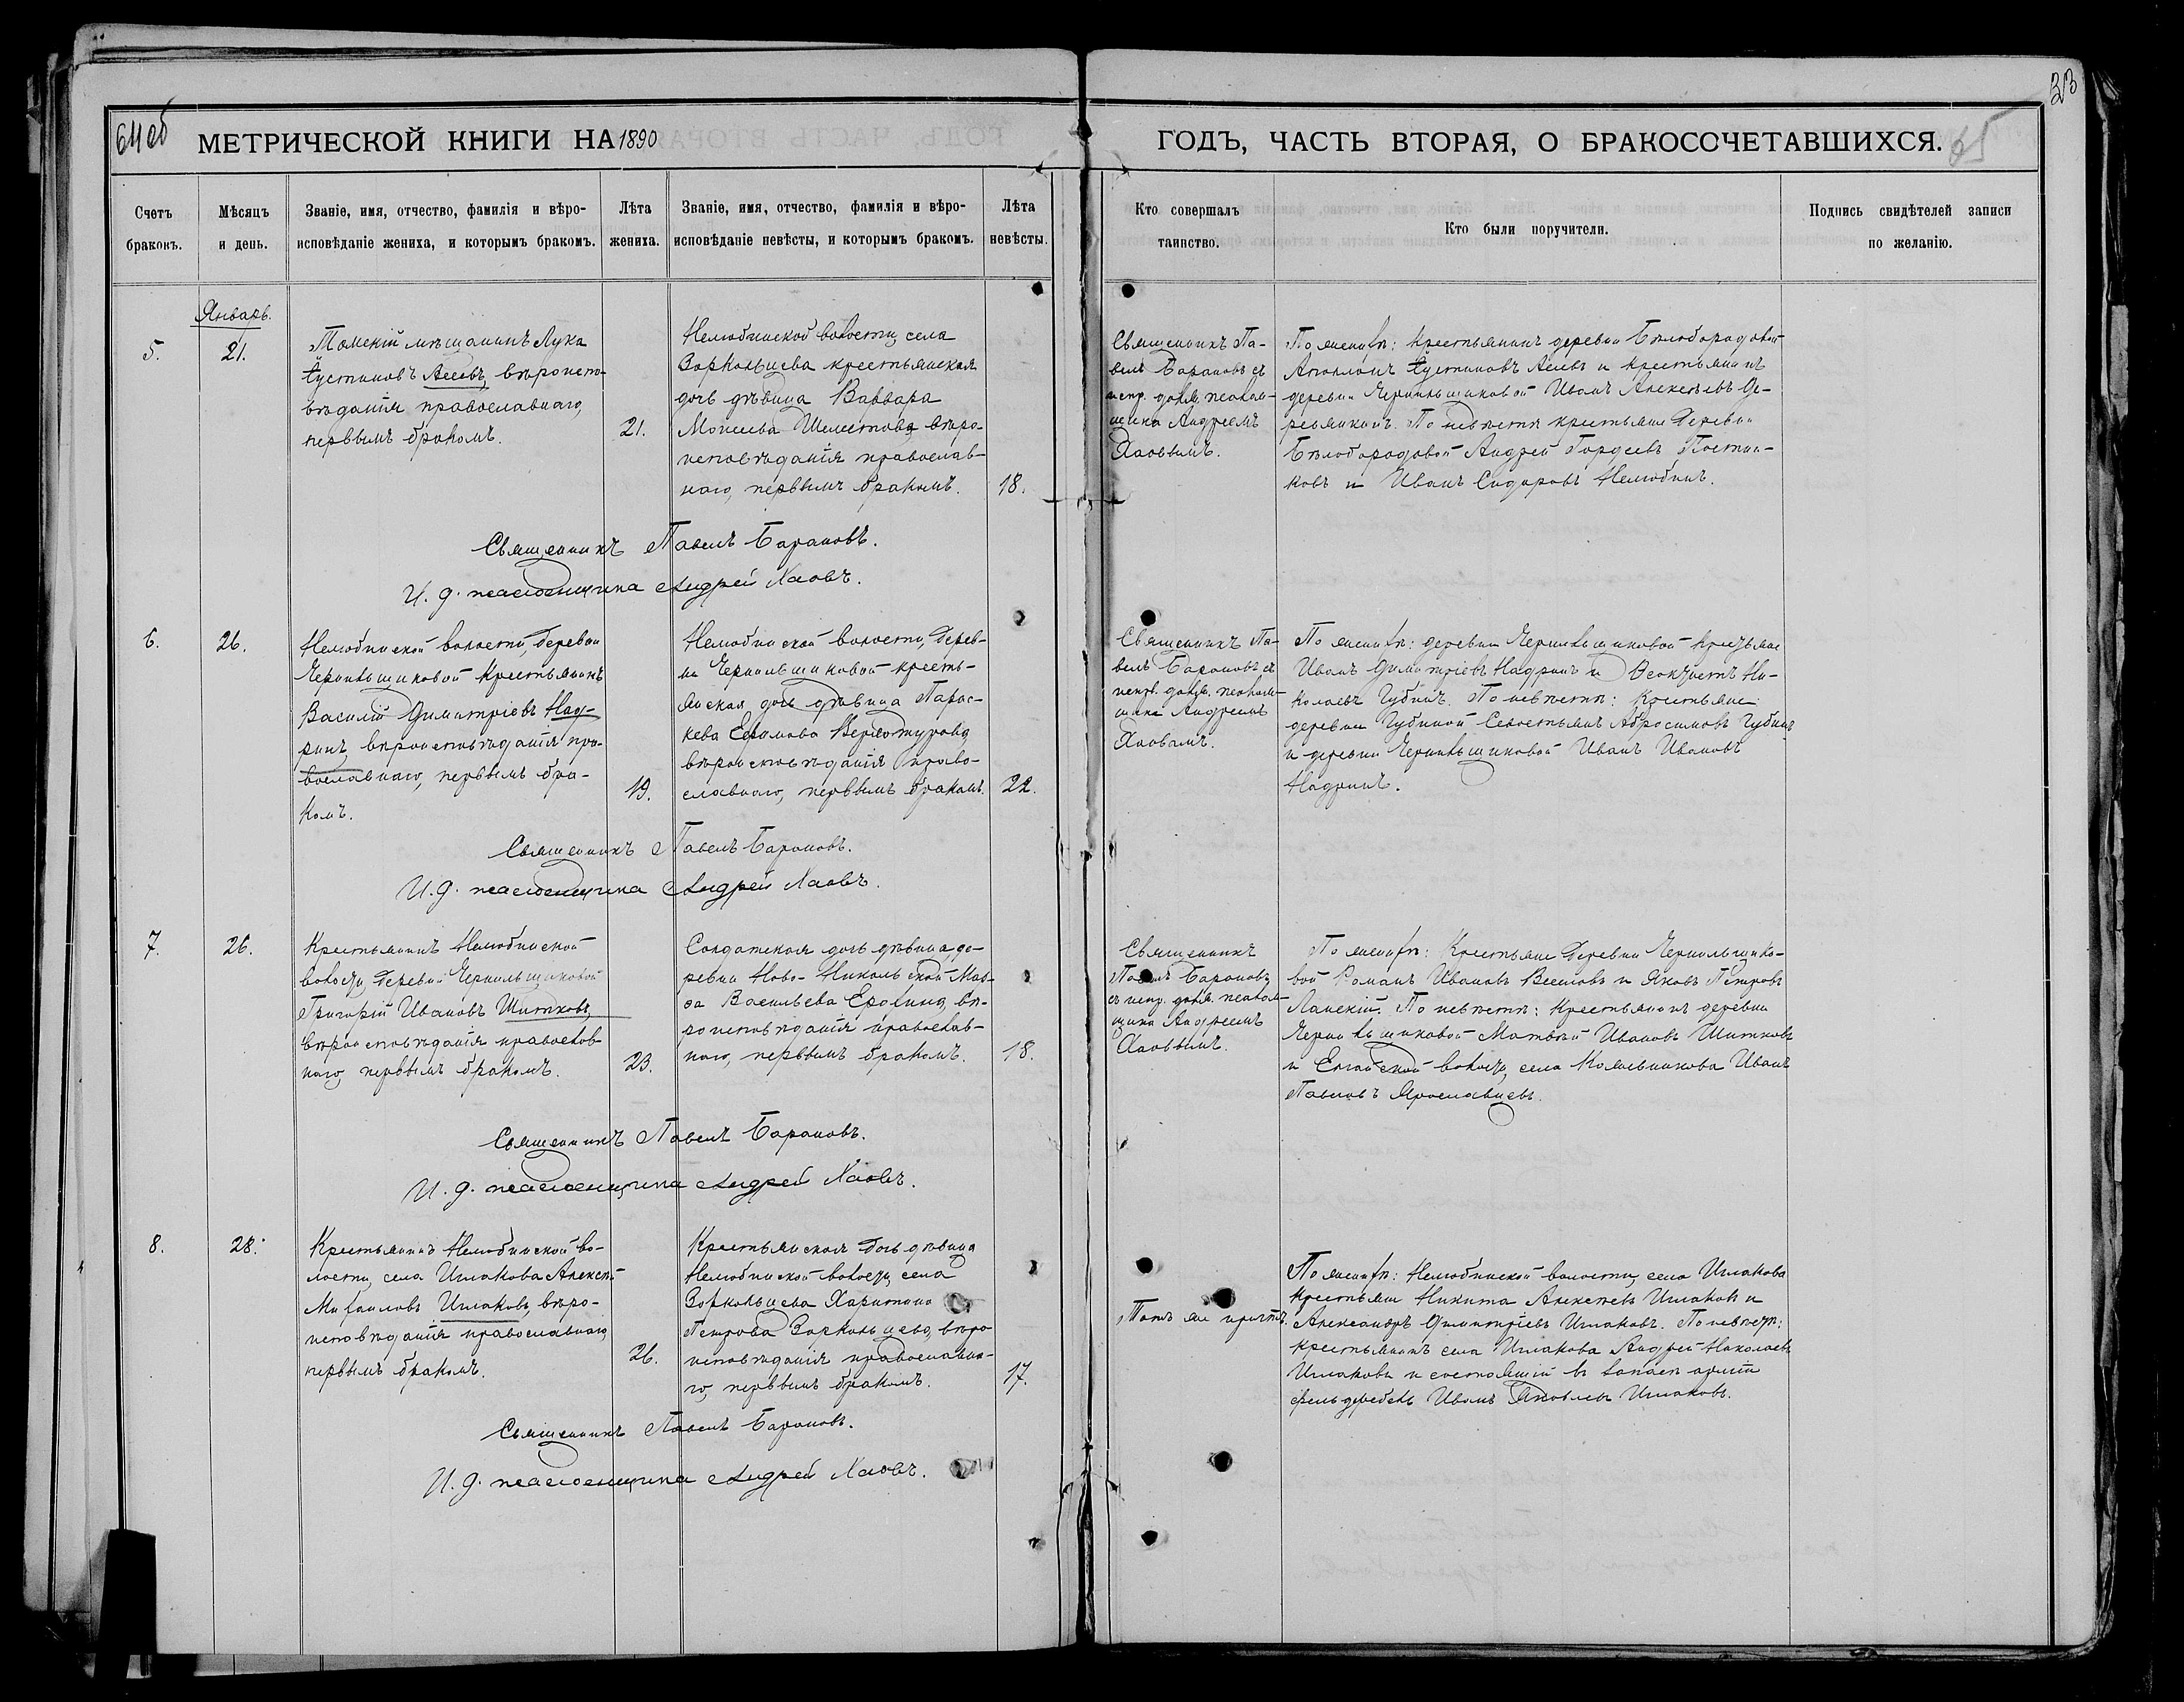 64об
33
МЕТРИЧЕСКОЙ КНИГИ НА 1890
ГОДЪ, ЧАСТЬ ВТОРАЯ, О БРАКОСОЧЕТАВШИХСЯ.
65
Счетъ
браковъ.
Мѣсяцъ
и день.
Званіе, имя, отчество, фамилія и вѣро-
исповѣданіе жениха, и которымъ бракомъ.
Лѣта
жениха.
Званіе, имя, отчество, фамилія и вѣро-
исповѣданіе невѣсты, и которымъ бракомъ.
Лѣта
невѣсты.
Кто совершалъ
таинство.
Кто были поручители.
Подпись свидѣтелей записи
по желанію.
Январь.
5.
21.
Томскій мѣщанинъ Лука
Іустиновъ Асеевъ, вѣроиспо-
вѣданія православнаго,
первымъ бракомъ.
21.
Нелюбинской волости, села
Зоркольцева крестьянская
дочь дѣвица Варвара
Моисеева Шелестова, вѣро-
исповѣданія православ-
наго, первымъ бракомъ.
18.
Священникъ Па-
велъ Барановъ съ
испр. долж. псалом-
щика Андреемъ
Хаовымъ.
По женихѣ: крестьянинъ деревни Бѣлобородовой
Аполлонъ Іустиновъ Асеевъ и крестьянинъ
деревни Чернильщиковой Иванъ Алексѣевъ
По невѣстѣ крестьяне деревни
Бѣлобородовой Андрей Гордеевъ
и Иванъ Сидоровъ Нелюбинъ.
Священникъ Павелъ Барановъ.
И. д. псаломщика Андрей Хаовъ.
6.
26.
Нелюбинской волости, деревни
Чернильщиковой крестьянинъ
Василій Димитріевъ Над-
ринъ, вѣроисповѣданія пра-
вославнаго, первымъ бра-
комъ.
19.
Нелюбинской волости, дерев-
ни Чернильщиковой кресть-
янская дочь дѣвица Парас-
кева Ефимова Верхотурова,
вѣроисповѣданія право-
славнаго, первымъ бракомъ.
22.
Священникъ Па-
велъ Барановъ съ
испр. долж. псалом-
щика Андреемъ
Хаовымъ.
По женихѣ: деревни Чернильщиковой крестьяне
Иванъ Димитріевъ Надринъ и Ѳеоктистъ Ни-
колаевъ Губинъ. По невѣстѣ: крестьяне
деревни Губиной Севостьянъ Абросимовъ Губинъ
и деревни Чернильщиковой Иванъ Ивановъ
Надринъ.
Священникъ Павелъ Барановъ.
И. д. псаломщика Андрей Хаовъ.
7.
26.
Крестьянинъ Нелюбинской
волости, деревни Чернильщиковой
Григорій Ивановъ Шитковъ,
вѣроисповѣданія православ-
наго, первымъ бракомъ.
23.
Солдатская дочь дѣвица, де-
ревни Ново-Никольской Мав-
ра Васильева Ерохина, вѣ-
роисповѣданія православ-
наго, первымъ бракомъ.
18.
Священникъ
Павелъ Барановъ
съ испр. долж. псалом-
щика Андреемъ
Хаовымъ.
По женихѣ: крестьяне деревни Чернильщико-
вой Романъ Ивановъ и Яковъ Петровъ
Ланскій. По невѣстѣ: крестьянинъ деревни
Чернильщиковой Матвѣй Ивановъ Шитковъ
и Елгайской волости, села Кожевникова Иванъ
Павловъ Ярославцевъ.
Священникъ Павелъ Барановъ.
И. д. псаломщика Андрей Хаовъ.
8.
28.
Крестьянинъ Нелюбинской во-
лости, села Иглакова Алексѣй
Михаиловъ Иглаковъ, вѣро-
исповѣданія православнаго,
первымъ бракомъ.
26.
Крестьянская дочь дѣвица
Нелюбинской волости, села
Зоркольцева Харитина
Петрова Зоркольцева, вѣро-
исповѣданія православна-
го, первымъ бракомъ.
17.
Тотъ же причтъ.
По женихѣ: Нелюбинской волости, села Иглакова
крестьяне Никита Алексѣевъ Иглаковъ и
Александръ Димитріевъ Иглаковъ. По невѣстѣ:
крестьянинъ села Иглакова Андрей Николаевъ
Иглаковъ и состоящій въ запасѣ арміи
Иванъ Яковлевъ Иглаковъ.
Священникъ Павелъ Барановъ.
И. д. псаломщика Андрей Хаовъ.